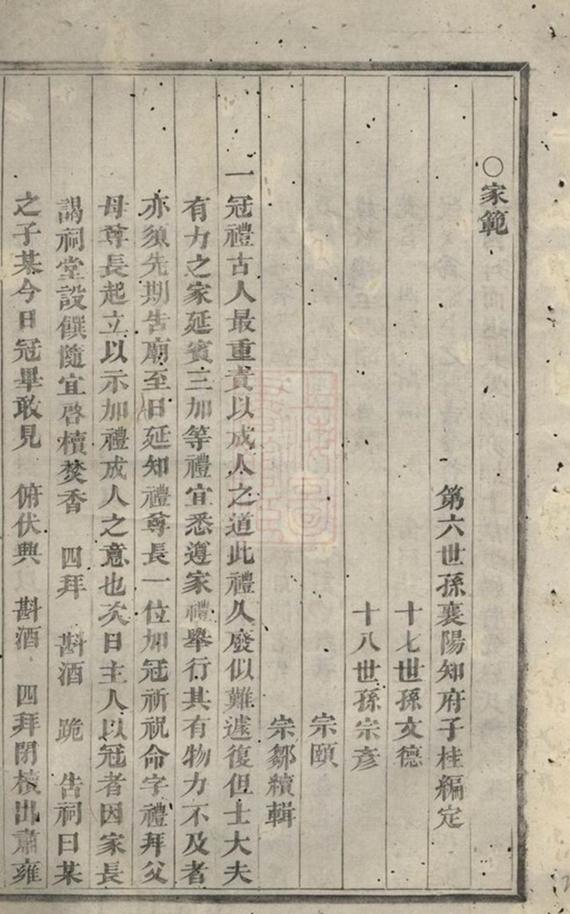 〇家範
第六世孫襄陽知府子桂編定
十七世孫文德
十八世孫宗彥
宗頤
宗鄒續輯
一冠禮古人最重責以成人之道此禮久廢似難遽復但士大夫
有力之家延賓三加等禮宜悉遵家禮舉行其有物力不及者
亦須先期告廟至日延知禮尊長一位加冠祈祝命字禮拜父
母尊長起立以示加禮成人之意也次日主人以冠者因家長
謁祠堂設饌隨宜啓櫝焚香 四拜 斟酒 跪 告祠曰某
之子某今日冠畢敢見 俯伏興 斟酒 四拜閉櫝出肅雍